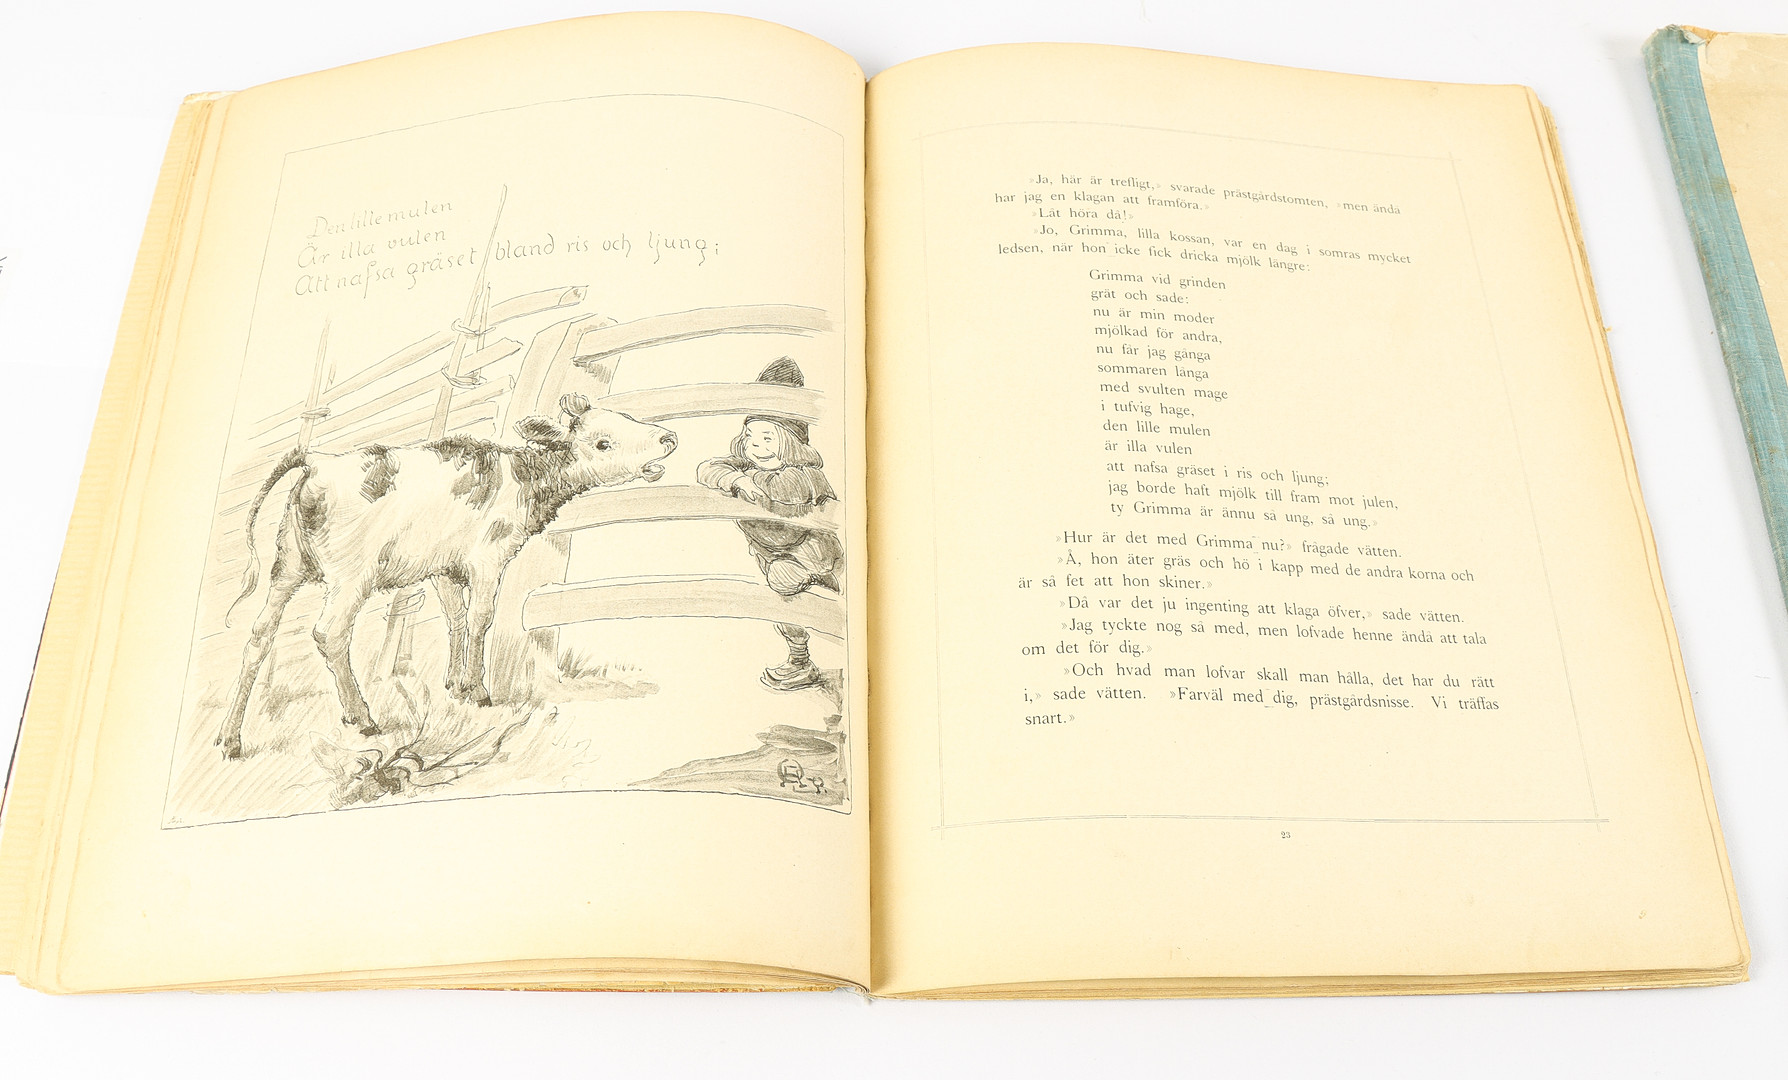 Den lille mulen
Är illa vulen
Att nafsa gräset bland ris och ljung;
»Ja, här är trefligt,» svarade prästgårdstomten, »men ändå
har jag en klagan att framföra.»
»Låt höra då!»
»Jo, Grimma, lilla kossan, var en dag i somras mycket
ledsen, när hon icke fick dricka mjölk längre:
Grimma vid grinden
grät och sade:
nu är min moder
mjölkad för andra,
nu får jag gånga
sommaren långa
med svulten mage
i tufvig hage,
den lille mulen
är illa vulen
att nafsa gräset i ris och ljung;
jag borde haft mjölk till fram mot julen,
ty Grimma är ännu så ung, så ung.»
»Hur är det med Grimma nu?» frågade vätten.
»Å, hon äter gräs och hö i kapp med de andra korna och
är så fet att hon skiner.»
»Då var det ju ingenting att klaga öfver,» sade vätten.
»Jag tyckte nog så med, men lofvade henne ändå att tala
om det för dig.»
»Och hvad man lofvar skall man hålla, det har du rätt
i,» sade vätten. »Farväl med dig, prästgårdsnisse. Vi träffas
snart.»
23